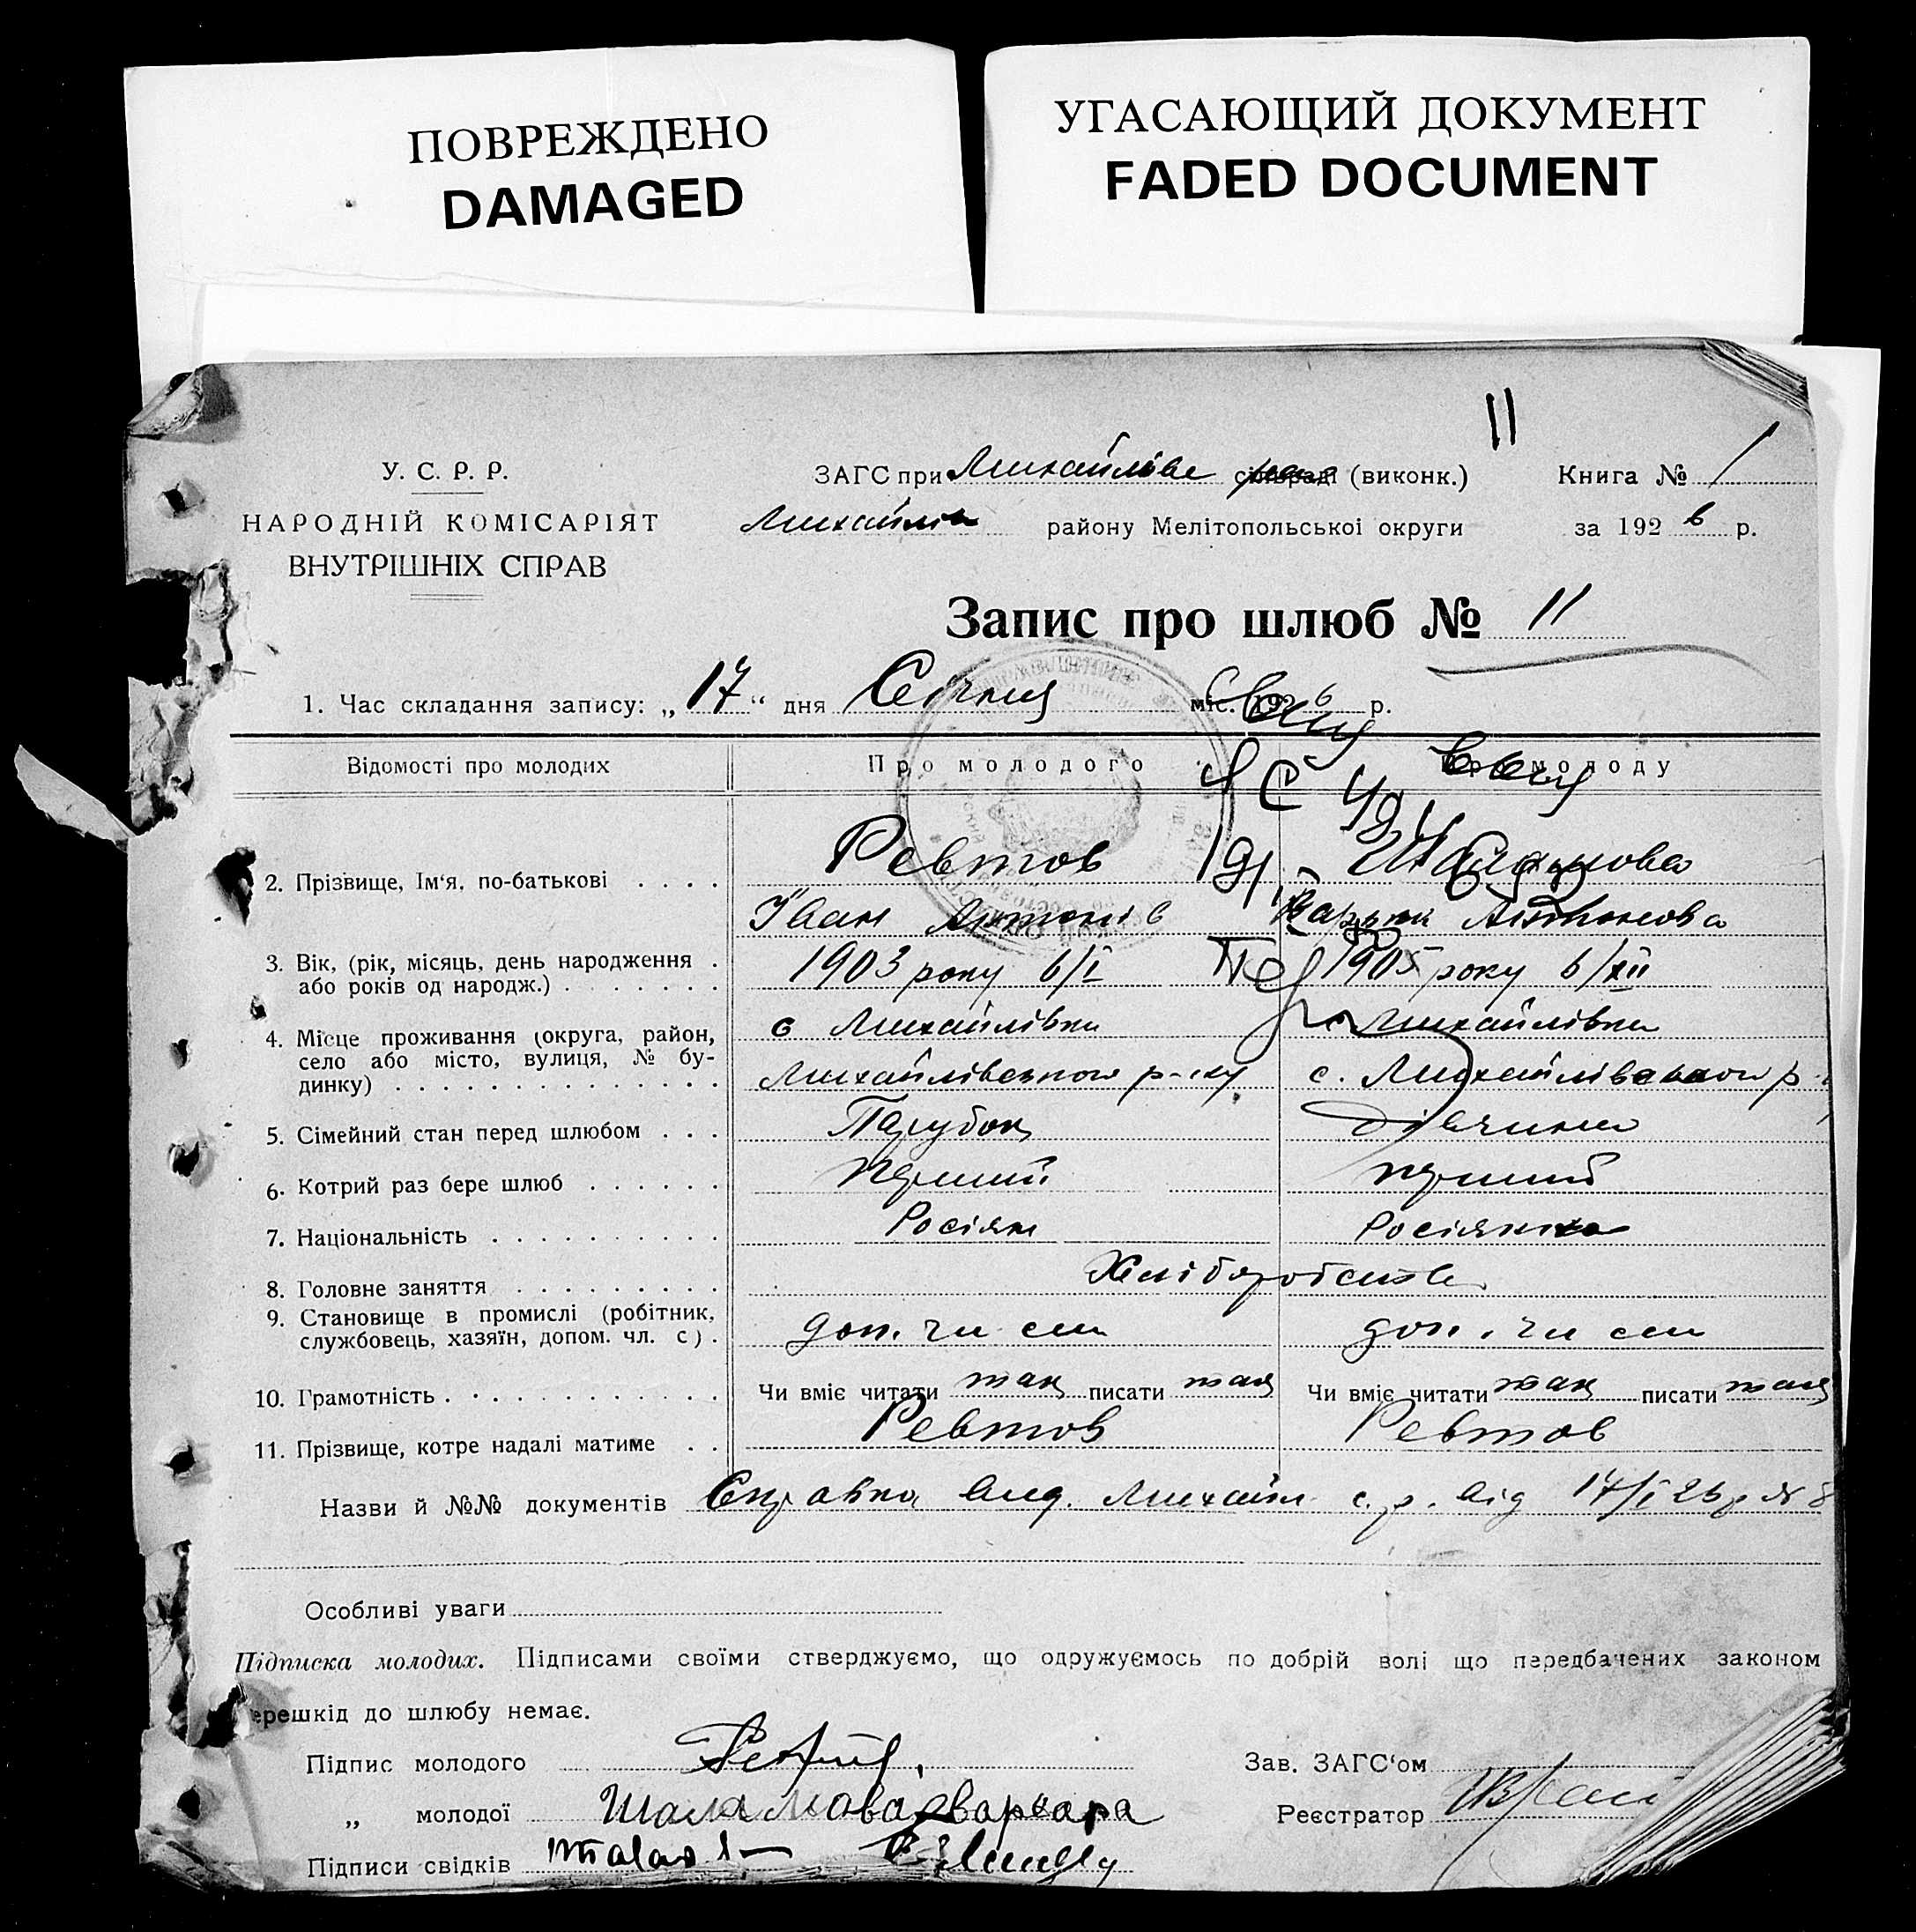 ПОВРЕЖДЕНО
DAMAGED
УГАСАЮЩИЙ ДОКУМЕНТ
FADED DOCUMENT
11
У. С. Р. Р.
НАРОДНІЙ КОМІСАРІЯТ
ВНУТРІШНІХ СПРАВ
ЗАГС при Михайлівс сільраді (виконк.) Книга № 1
Михайлів району Мелітопольської округи за 1926 р.
Запис про шлюб № 11
1. Час складання запису: „17“ дня Січня міс. 1926 р.
Відомості про молодих Про молодого Про молоду
2. Прізвище, Ім‘я, по-батькові . . . . Ревтов
Іван Антонів
3. Вік, (рік, місяць, день народження . або років од народж.) . . . . . . . 1903 року 6/I 1905 року 6/XII
4. Місце проживання (округа, район, село або місто, вулиця, № будинку) . . . . . . . . . . . . . . с Михайлівки с Михайлівки
Михайлівського р-ну с. Михайлівського р
5. Сімейний стан перед шлюбом . . . Парубок Дівчина
6. Котрий раз бере шлюб . . . . . . перший перший
7. Національність . . . . . . . . . . Росіян Росіянка
8. Головне заняття . . . . . . . . . Хліборобство
9. Становище в промислі (робітник, службовець, хазяїн, допом. чл. с) . доп. чл сем доп. чл сем
10. Грамотність . . . . . . . . . . . . Чи вміє читати так писати так Чи вміє читати так писати так
11. Прізвище, котре надалі матиме . . Ревтов Ревтов
Назви й №№ документів Справка вид. Михайл. с. р. від 17/I 26 р № 8
Особливі уваги
Підписка молодих. Підписами своїми стверджуємо, що одружуємось по добрій волі що передбачених законом
перешкід до шлюбу немає.
Підпис молодого
Зав. ЗАГС‘ом
„ молодої Шаламова Варвара
Реєстратор
Підписи свідків